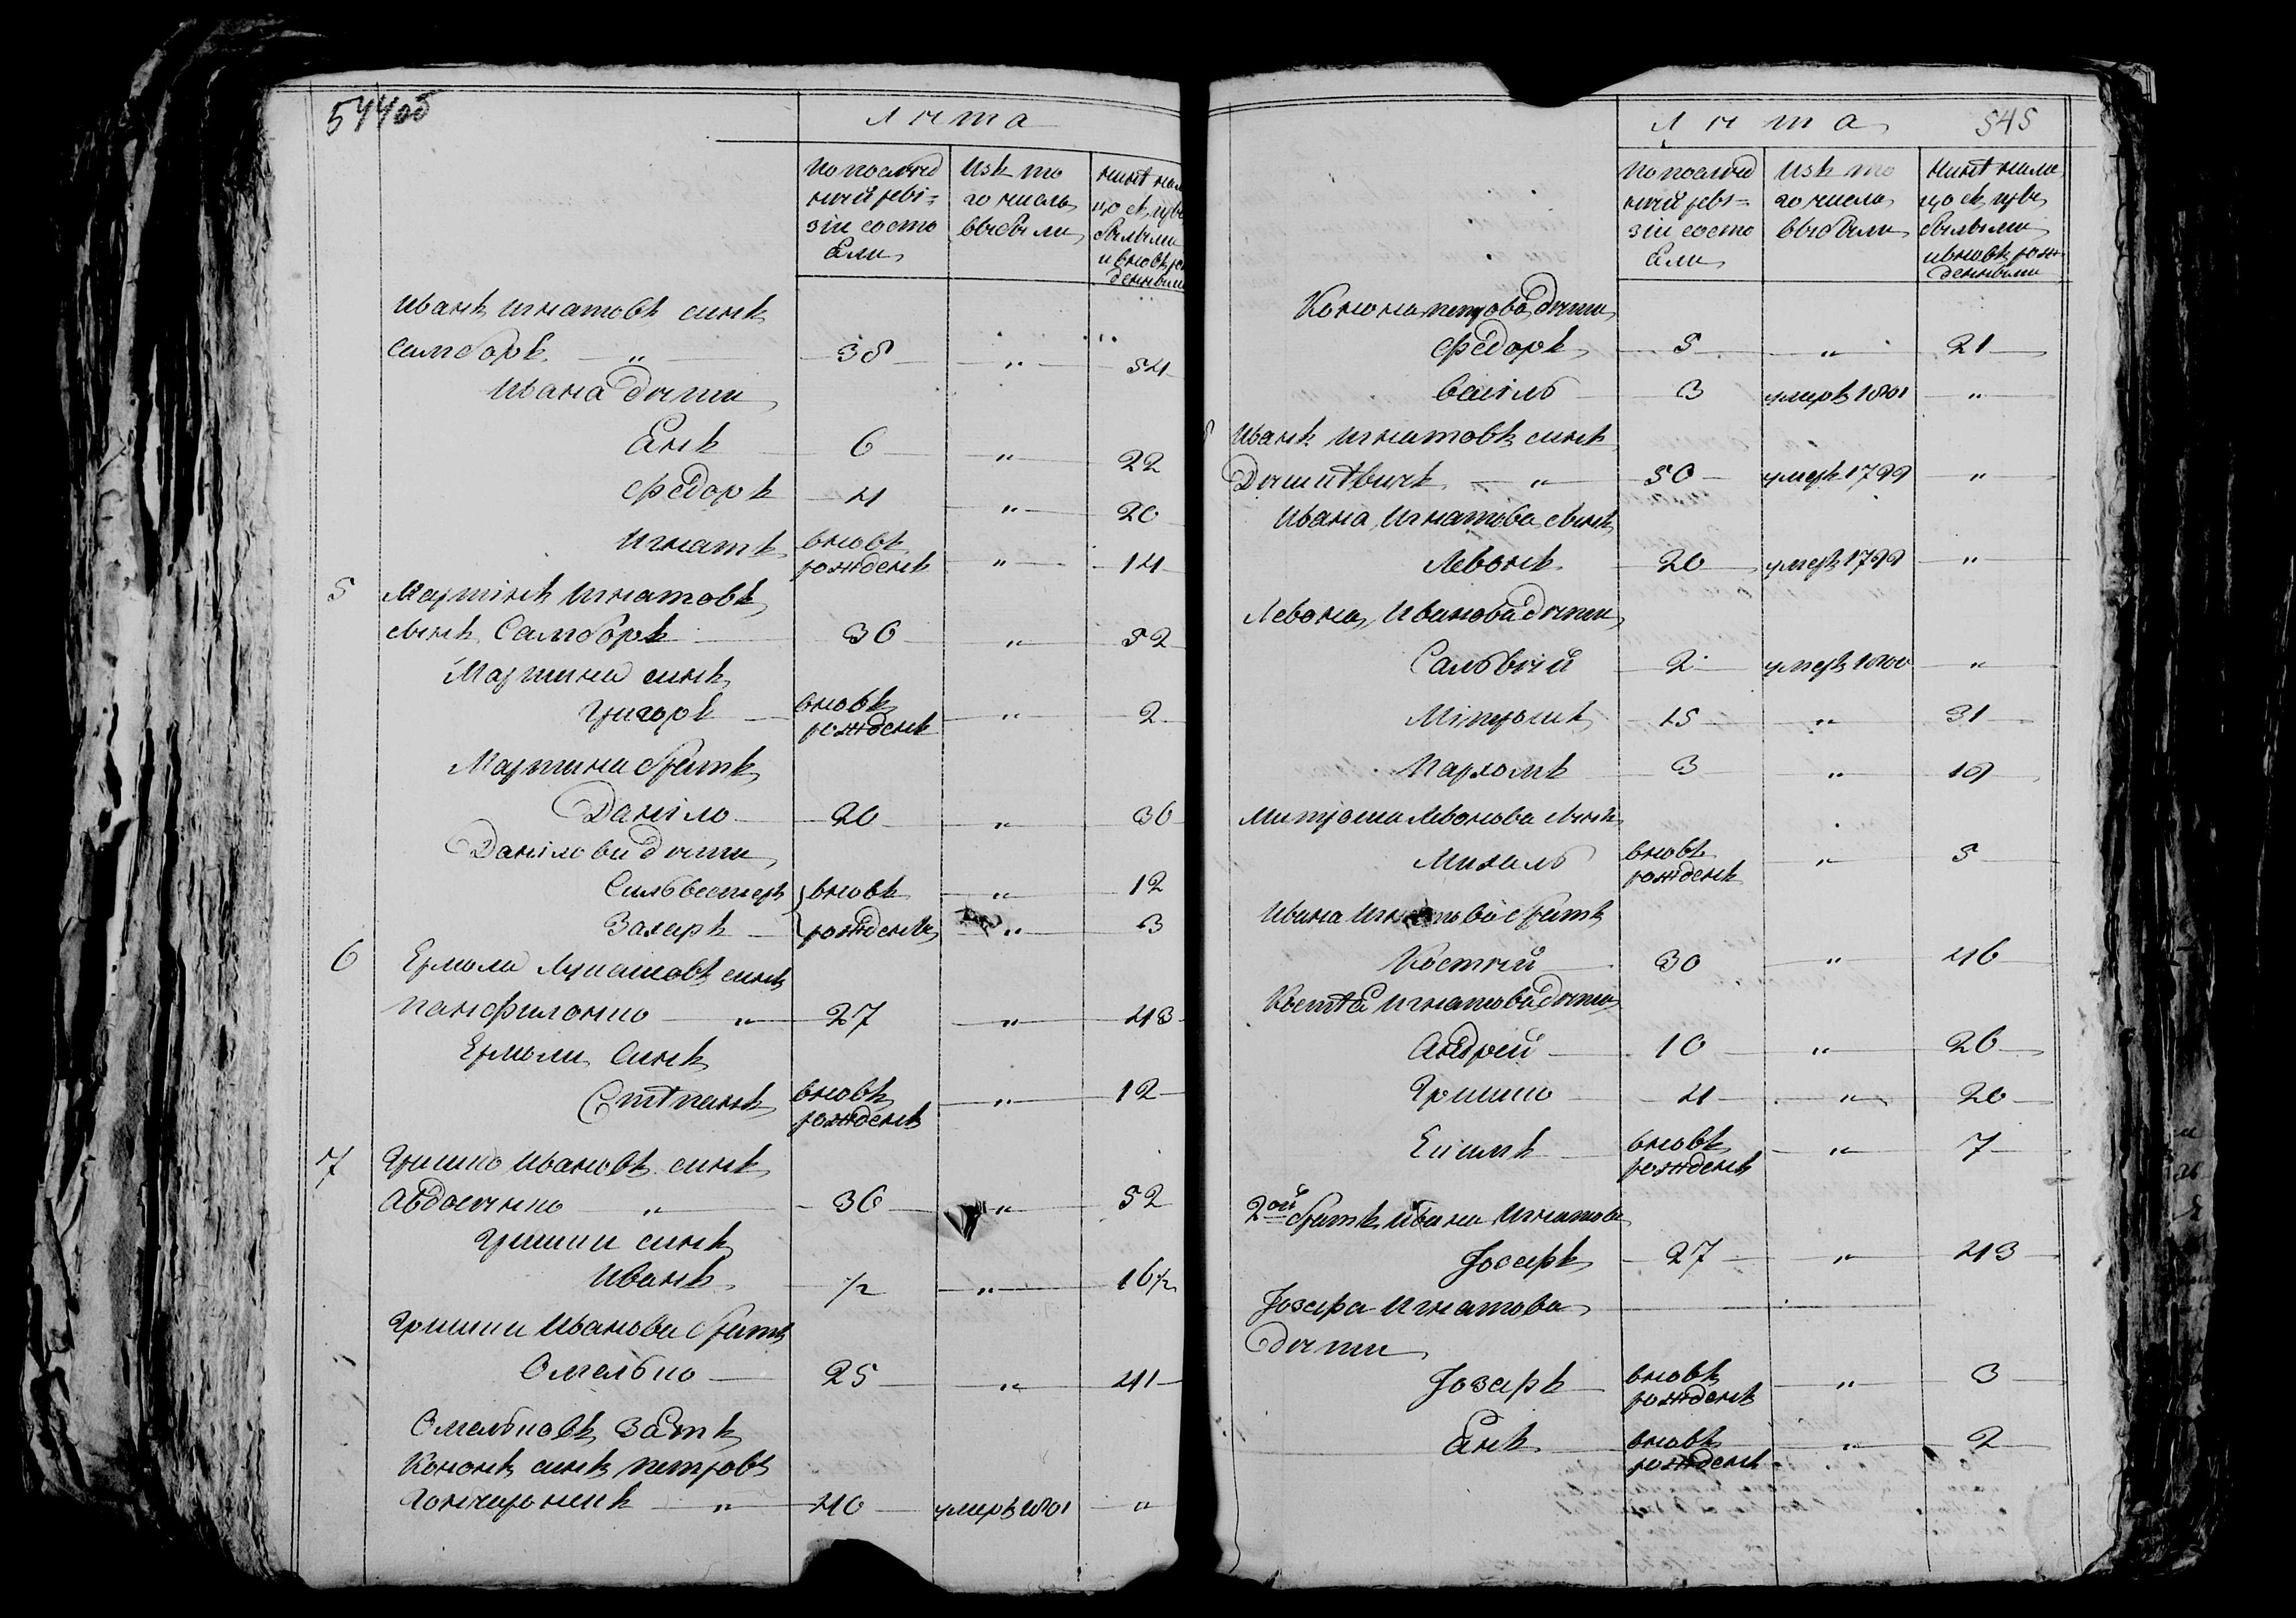 544об
Лѣта
По послѣд Изъ то нынѣ нали
ней реві= го числа цо съ при
зіи состо выбыли былыми
яли и вновь рож
денными
Иванъ Игнатовъ синъ
Самборъ " 38 " 54
Ивана дѣти
Янъ 6 " 22
Федоръ 4 " 20
Игнатъ вновь рожденъ " 14
5 Мартінъ Игнатовъ
сынъ Самборъ 36 " 52
Мартина синъ
Григоръ вновь рожденъ " 2
Мартина братъ
Даніло 20 " 36
Данілови дѣти
Сильвестеръ вновь " 12
Захаръ рождены " 3
6 Ермола Лукашовъ синъ
Панфиленко " 27 " 43
Ермоли синъ
Стѣпанъ вновь рожденъ " 12
7 Гришко Ивановъ синъ
Авдоѣнко " 36 " 52
Гришки синъ
Иванъ ½ " 16½
Гришки Иванова братъ
Омелько 25 " 41
Омельковъ зять
Кононъ синъ Петровъ
Гончаронокъ " 40 умеръ 1801 "
Лѣта 545
По послѣд Изъ то Нынѣ нали
ней реві= го числа цо съ при
зіи состо выбыли былыми
яли и вновь рож
денными
Конона Петрова дѣти
Федоръ 5 " 21
Василь 3 умеръ 1801 "
8 Иванъ Игнатовъ синъ
Дѣшѣвикъ " 50 умеръ 1799 "
Ивана Игнатова сынъ
Левонъ 20 умеръ 1799 "
Левона Иванова дѣти
Савѣтѣй 2 умеръ 1800 "
Мітрошъ 15 " 31
Пархомъ 3 " 19
Митроша Левонова сынъ
Михаль вновь рожденъ " 5
Ивана Игнатова братъ
Костѣй 30 " 46
Костѣя Игнатова дѣти
Андрей 10 " 26
Гришко 4 " 20
Екимъ вновь рожденъ " 7
2ой братъ Ивана Игнатова
Іозафъ 27 " 43
Іозафа Игнатова
дѣти
Іозафъ вновь рожденъ " 3
Янъ вновь рожденъ " 2